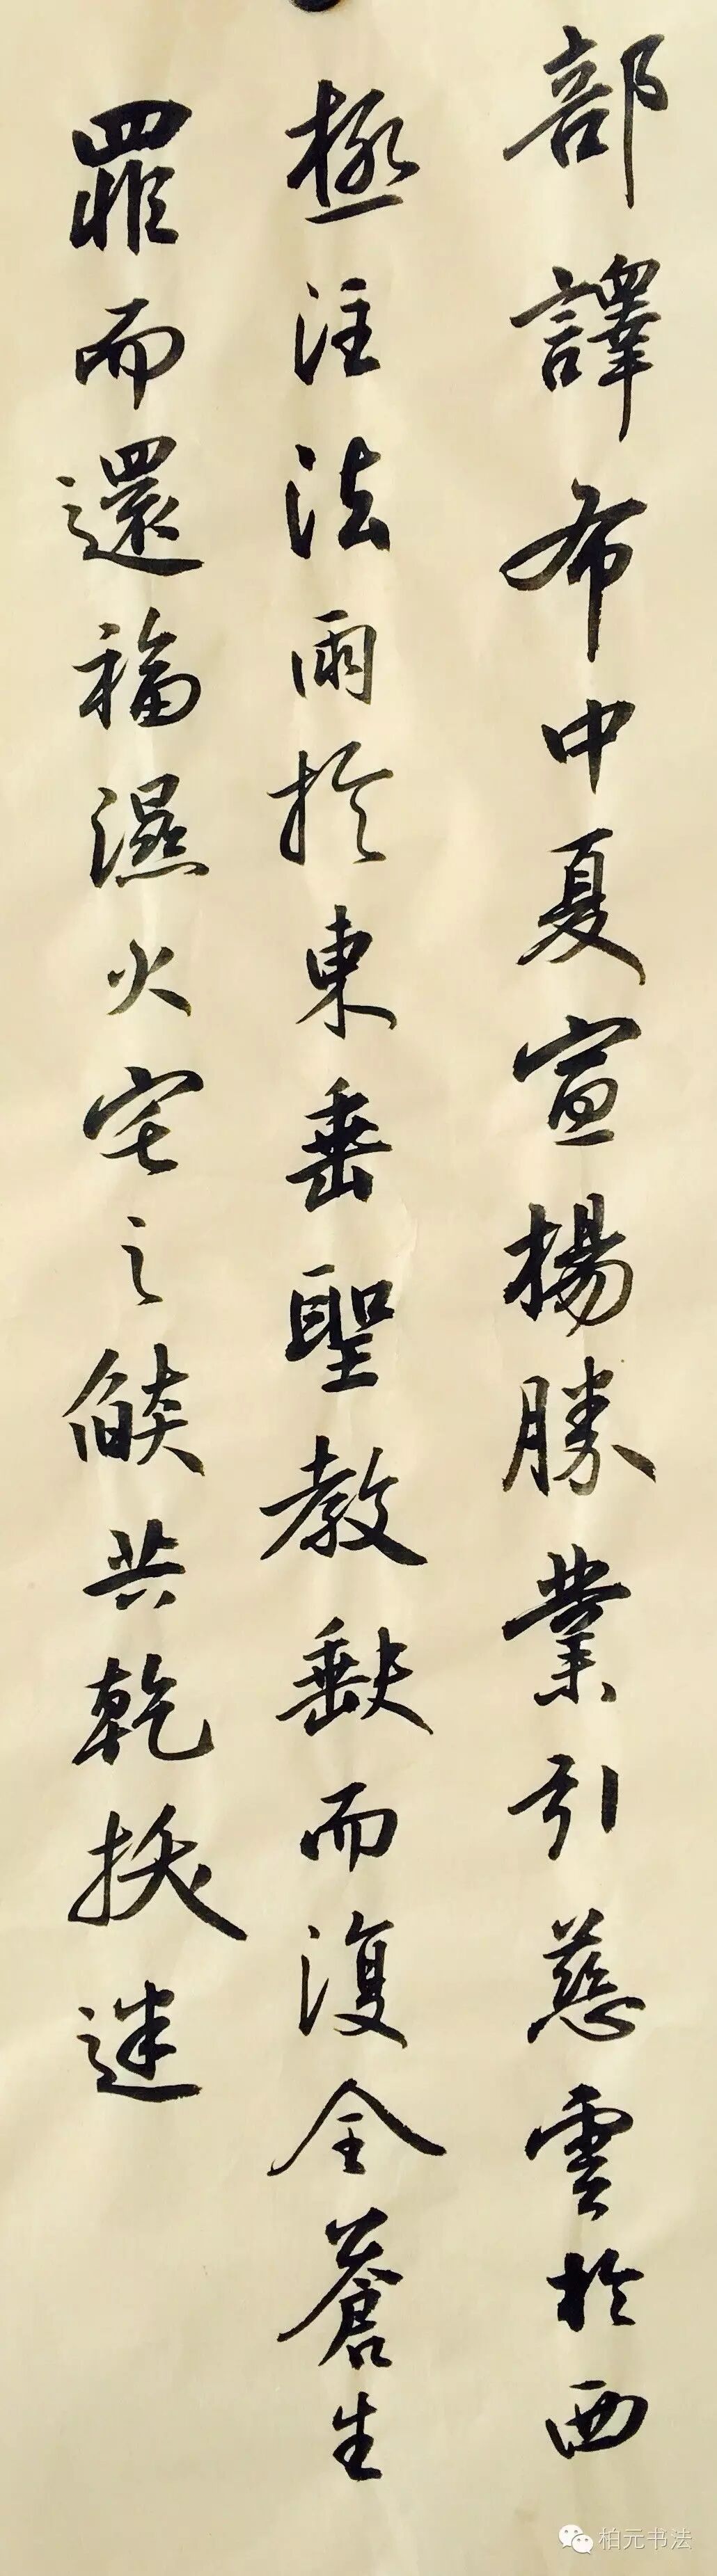 部譯布中夏宣揚勝業引慈雲於西
極注法雨於東垂聖教缺而復全蒼生
罪而還福濕火宅之燄共乾扶迷
柏元书法